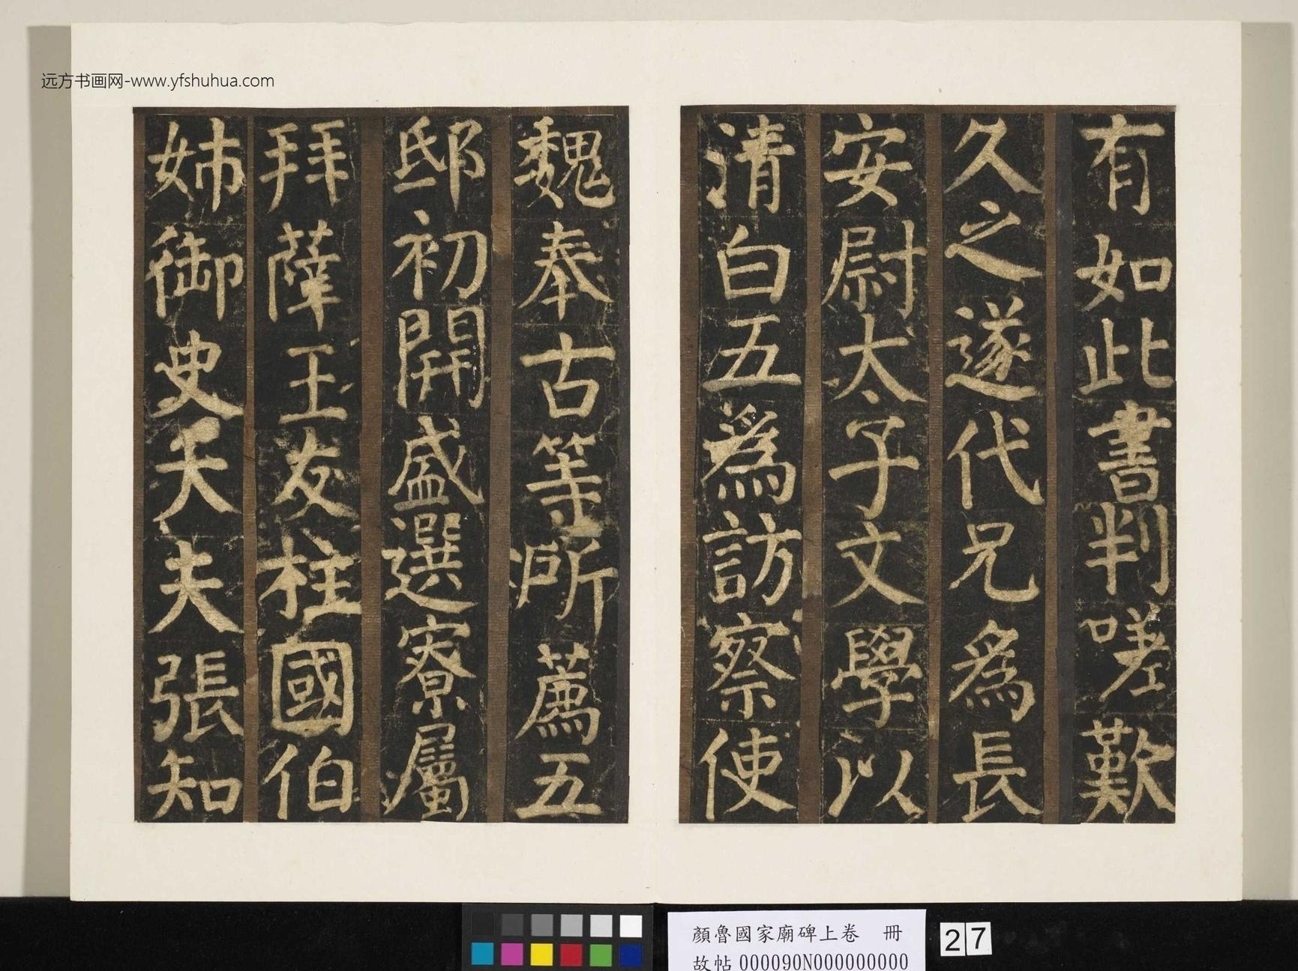 远方书画网-www.yfshuhua.com
有如此書判嗟歎
久之遂代兄爲長
安尉太子文學以
清白五爲訪察使
魏奉古等所薦五
邸初開盛選寮屬
拜薛王友柱國伯
姊御史大夫張知
顏魯國家廟碑上卷 冊
故帖 000090N000000000
27